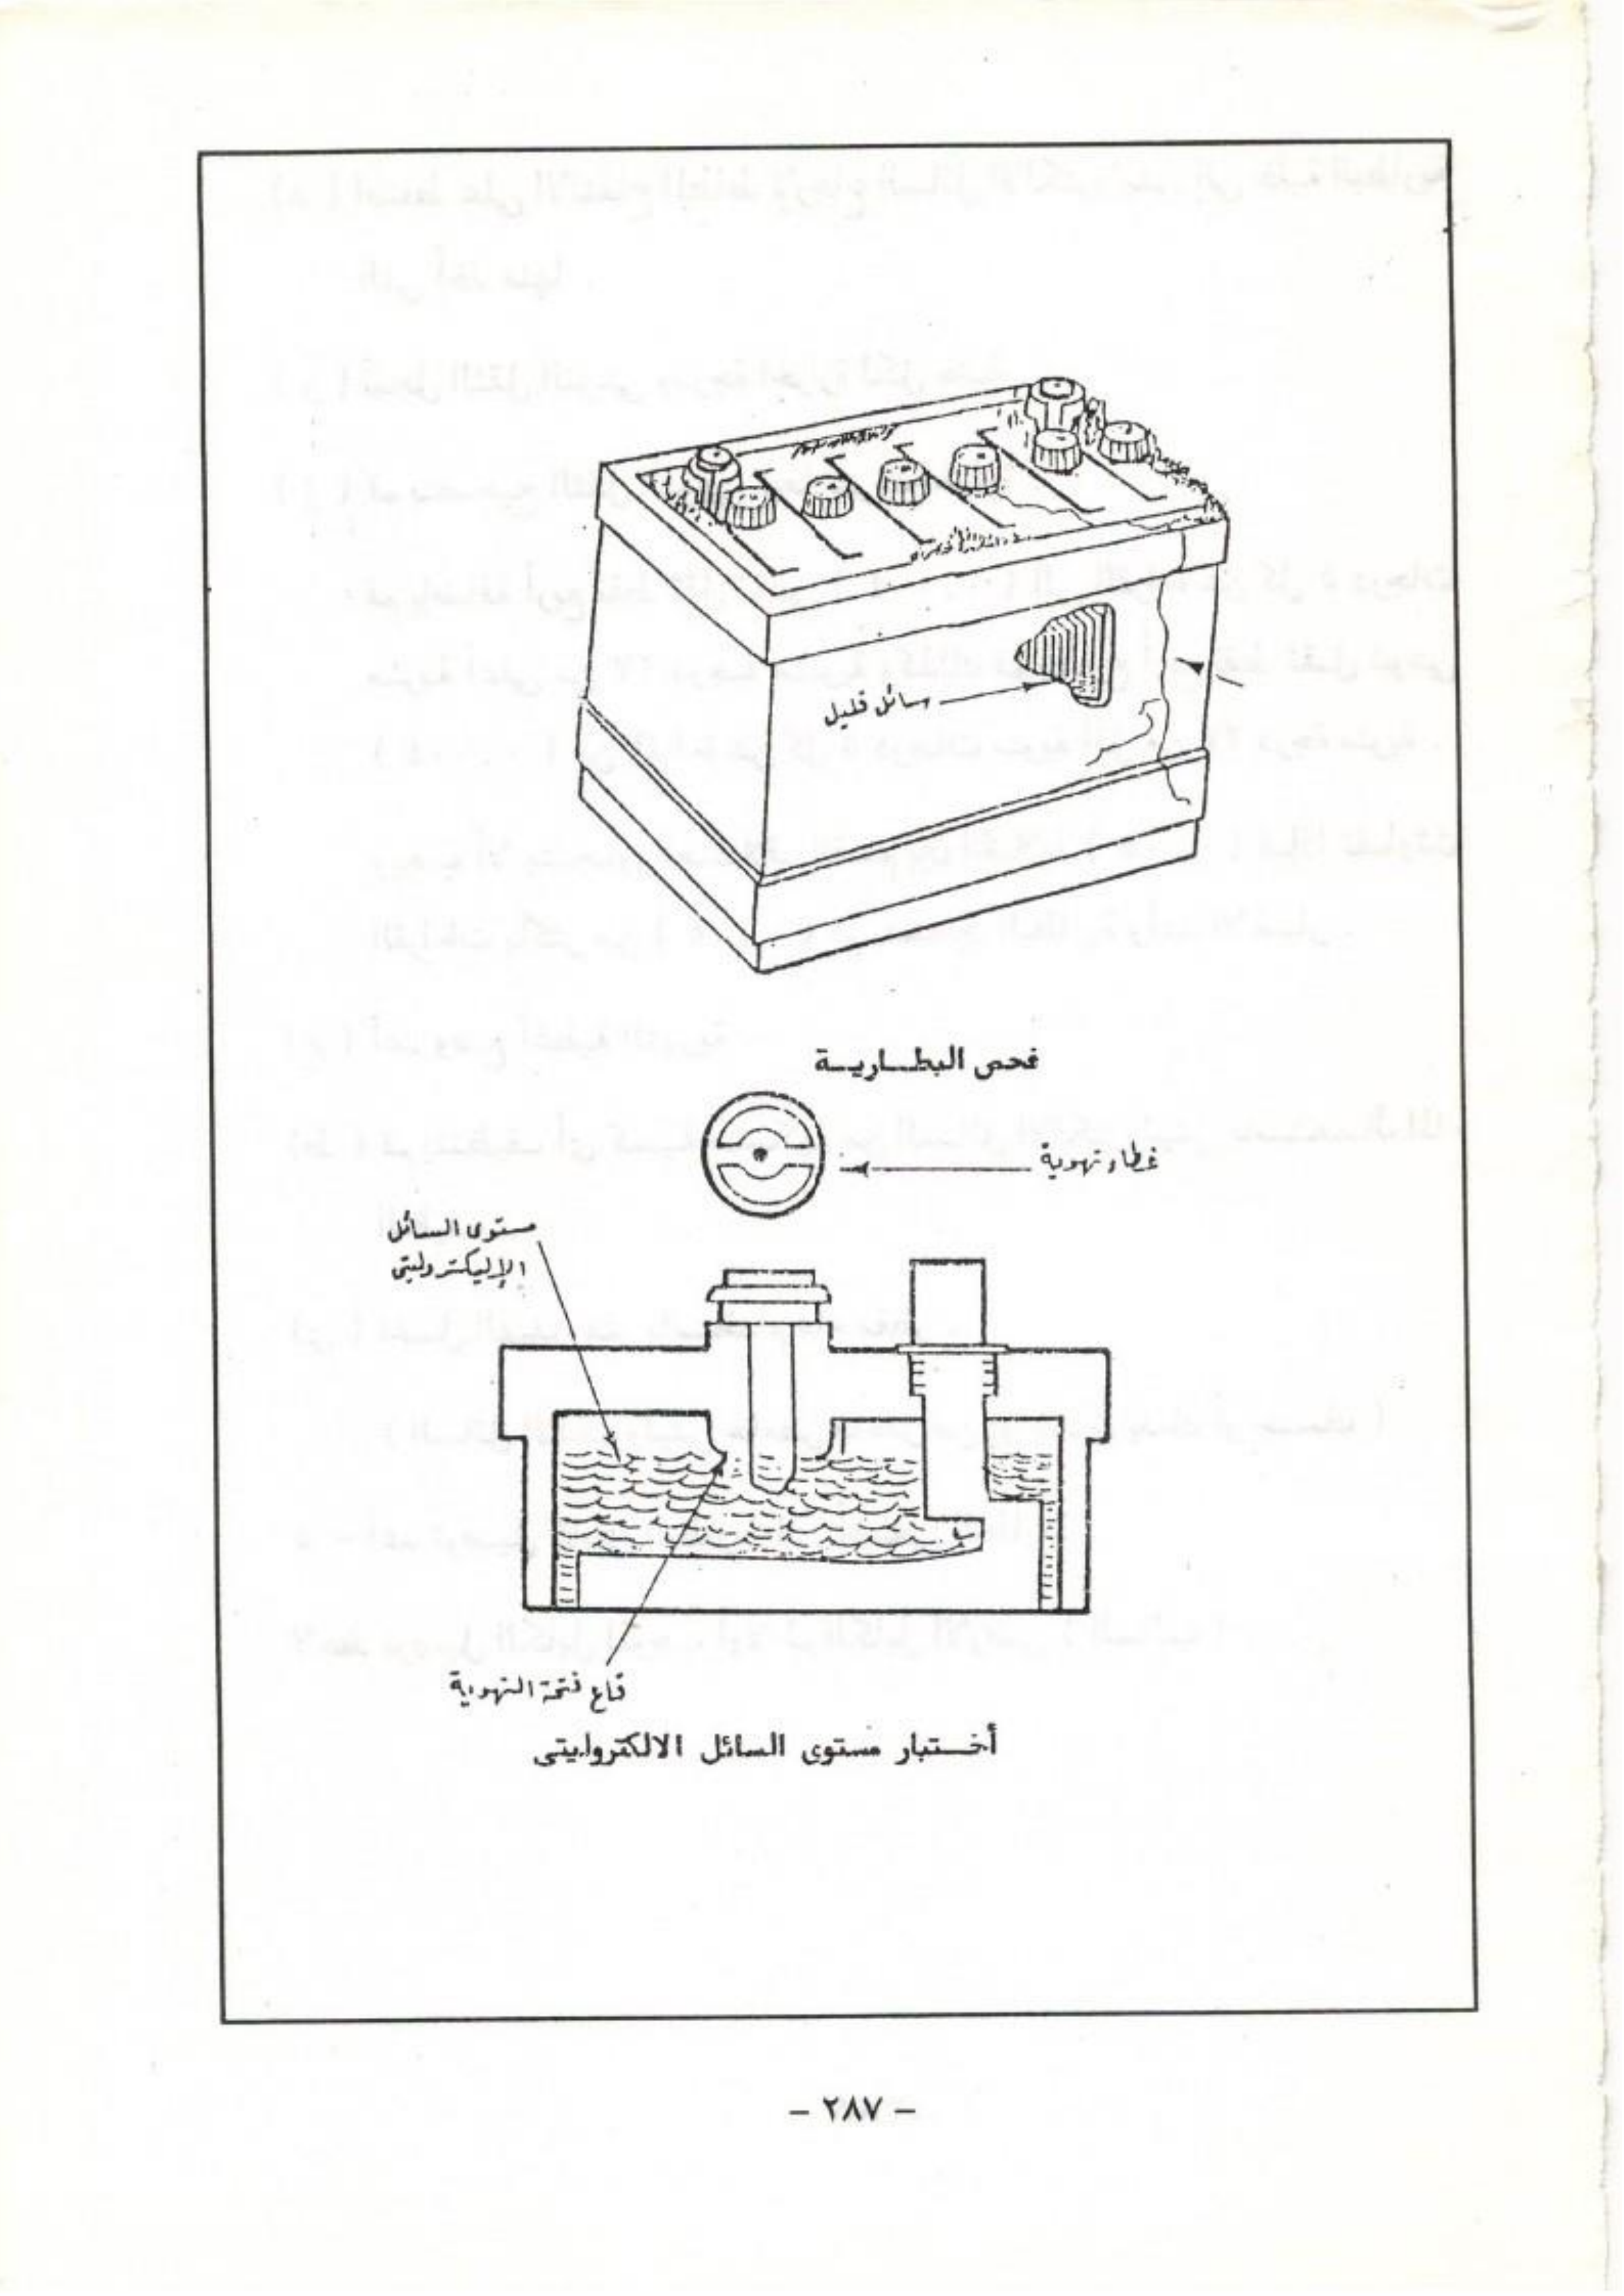 سائل قليل
فحص البطارية
غطاء تهوية
مستوى السائل
الإليكتروليتى
قاع فتحة التهوية
أختبار مستوى السائل الالكتروليتى
- ٢٨٧ -